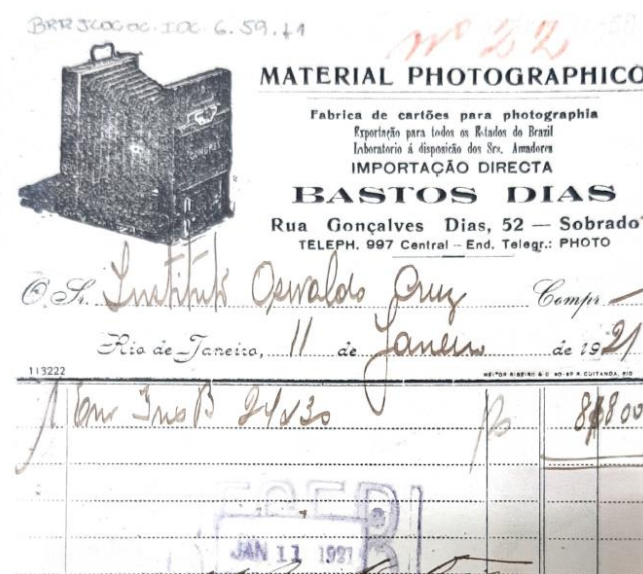 BRRJCOCOC.IOC.6.59.41
nº 22
MATERIAL PHOTOGRAPHICO
Fabrica de cartões para photographia
Exportação para todos os Estados do Brazil
Laboratorio á disposição dos Srs. Amadores
IMPORTAÇÃO DIRECTA
BASTOS DIAS
Rua Gonçalves Dias, 52 — Sobrado
TELEPH. 997 Central – End. Telegr.: PHOTO
O Sr. Instituto Oswaldo Cruz Compr.
Rio de Janeiro, 11 de Janeiro de 1921
113222
HEITOR RIBEIRO & C
1 24x30 8$800
JAN 11 1921